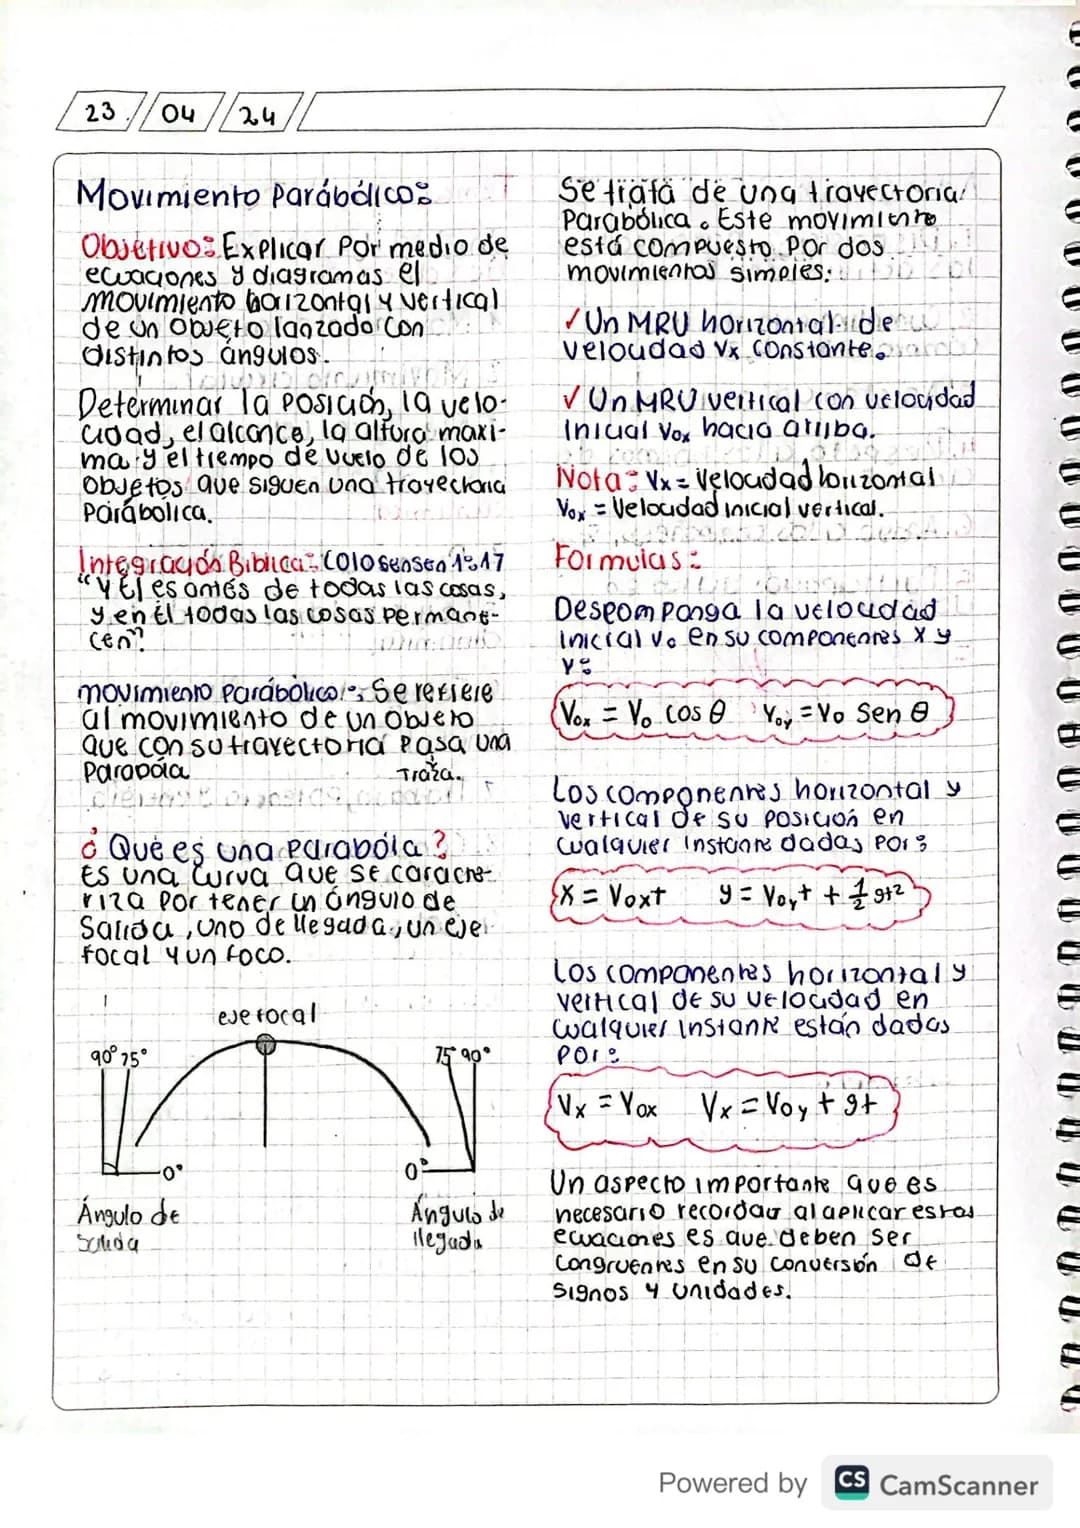 23 / 04 / 24
Movimiento Parábólico:
Objetivo: Explicar Por medio de
ecuaciones y diagramas el
movimiento horizontal y vertical
de un Objeto lanzado con
distintos ángulos.
Determinar la Posición, la velo-
cidad, el alcance, la altura maxi-
ma y el tiempo de vuelo de los
Objetos que siguen una trayectoria
Parábolica.
Integración Bíblica: Colosensen 1:17
"Y Él es antes de todas las cosas,
y en Él todas las cosas Permane-
cen"
movimiento Parábolico: Se refiere
al movimiento de un objeto
que con su trayectoria Pasa una
Parabóla Traza.
¿Qué es una Parabóla?
Es una Curva que se caracte-
riza por tener un ángulo de
Salida, uno de llegada, un eje
focal y un foco.
eje focal
90° 75° 75° 90°
0° 0°
Ángulo de
Salida
Ángulo de
llegada
Se trata de una trayectoria
Parabólica. Este movimiento
está compuesto Por dos
movimientos simples:
✓ Un MRU horizontal de
velocidad Vx Constante.
✓ Un MRU vertical con velocidad
Inicial Vox hacia arriba.
Nota: Vx = Velocidad horizontal
Vox = Velocidad inicial vertical.
Formulas:
Descomponga la velocidad
inicial Vo en su componentes X y
Y:
Vox = Vo cos θ Voy = Vo Sen θ
Los componentes horizontal y
vertical de su posición en
cualquier instante dadas Por:
X = Voxt y = Voyt + ½ gt²
Los componentes horizontal y
vertical de su velocidad en
cualquier instante están dadas
Por:
Vx = Vox Vx = Voy + gt
Un aspecto importante que es
necesario recordar al aplicar estas
ecuaciones es que deben ser
Congruentes en su Conversión de
Signos y Unidades.
Powered by CS CamScanner